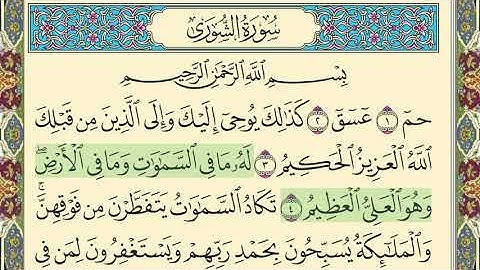 سُورَةُ الشُّورَىٰ
بِسْمِ اللَّهِ الرَّحْمَٰنِ الرَّحِيمِ
حمٓ ١ عٓسٓقٓ ٢ كَذَٰلِكَ يُوحِيٓ إِلَيْكَ وَإِلَى الَّذِينَ مِن قَبْلِكَ
اللَّهُ الْعَزِيزُ الْحَكِيمُ ٣ لَهُۥ مَا فِي السَّمَٰوَٰتِ وَمَا فِي الْأَرْضِۖ
وَهُوَ الْعَلِيُّ الْعَظِيمُ ٤ تَكَادُ السَّمَٰوَٰتُ يَتَفَطَّرْنَ مِن فَوْقِهِنَّۚ
وَالْمَلَٰٓئِكَةُ يُسَبِّحُونَ بِحَمْدِ رَبِّهِمْ وَيَسْتَغْفِرُونَ لِمَن فِي